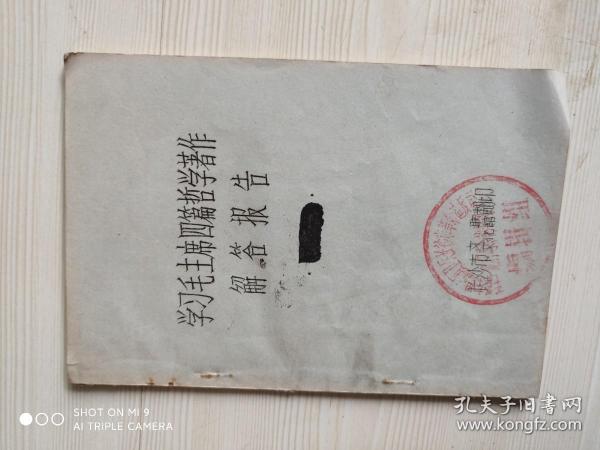 学习毛主席四篇哲学著作
解答报告
长沙市文化馆翻印
SHOT ON MI 9
AI TRIPLE CAMERA
孔夫子旧书网
www.kongfz.com